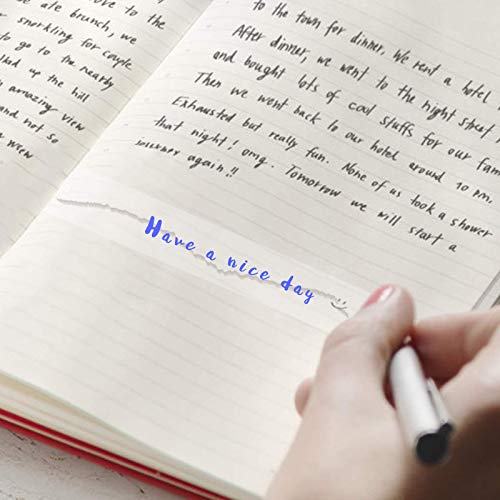 ate brunch, we
snorkeling for couple
to go to the nearby
up the hill
amazing view
and not so
to the town for dinner. We rent a hotel
After dinner, we went to the night street
and bought lots of cool stuffs for our fam
Then we went back to our hotel around 10 pm.
Exhausted but really fun. None of us took a shower
that night! omg. Tomorrow we will start a
journey again!!
Have a nice day